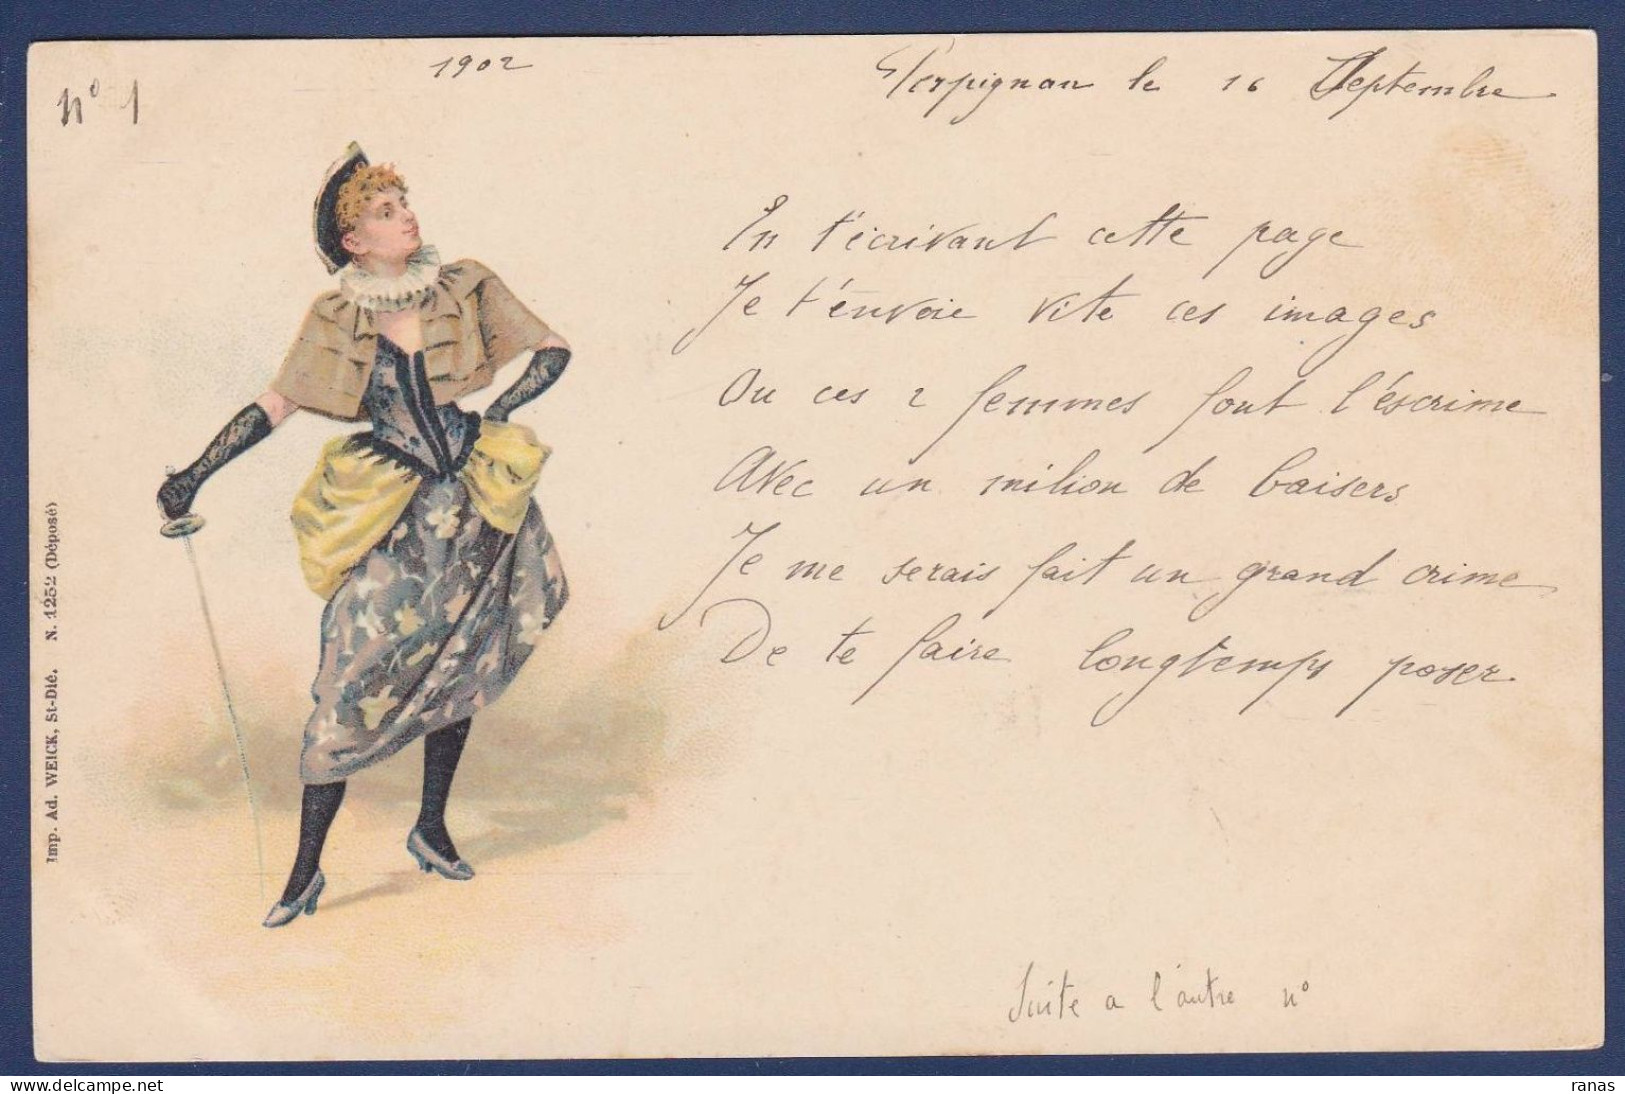 1902
Perpignan le 16 Septembre
n° 1
En t'écrivant cette page
Je t'envoie vite ces images
Ou ces 2 femmes font l'éscrime
Avec un milion de baisers
Je me serais fait un grand crime
De te faire longtemps poser.
Suite a l'autre n°
Imp. Ad. WEICK, St-Dié. N. 1252 (Déposé)
ranas